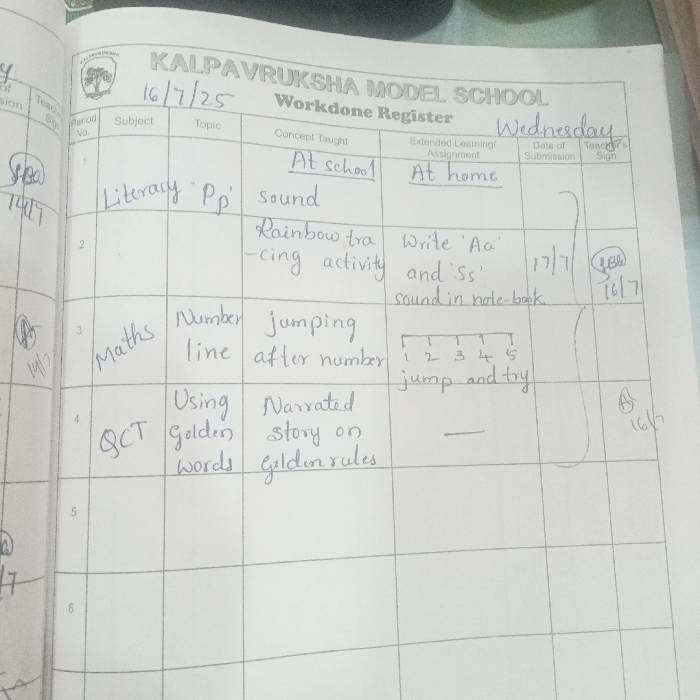 KALPAVRUKSHA MODEL SCHOOL
16/7/25 Workdone Register Wednesday
Period No. Subject Topic Concept Taught Extended Learning/ Assignment Date of Submission Teacher's Sign
At school At home
1 Literacy 'Pp' sound
2 Rainbow tra Write 'Aa'
-cing activity and 'Ss' 17/7
sound in note-book 16/7
3 Maths Number jumping
line after number 1 2 3 4 5
jump and try
4 Using Narrated
QCT Golden story on — 16/7
words Golden rules
5
6
14/7
14/7